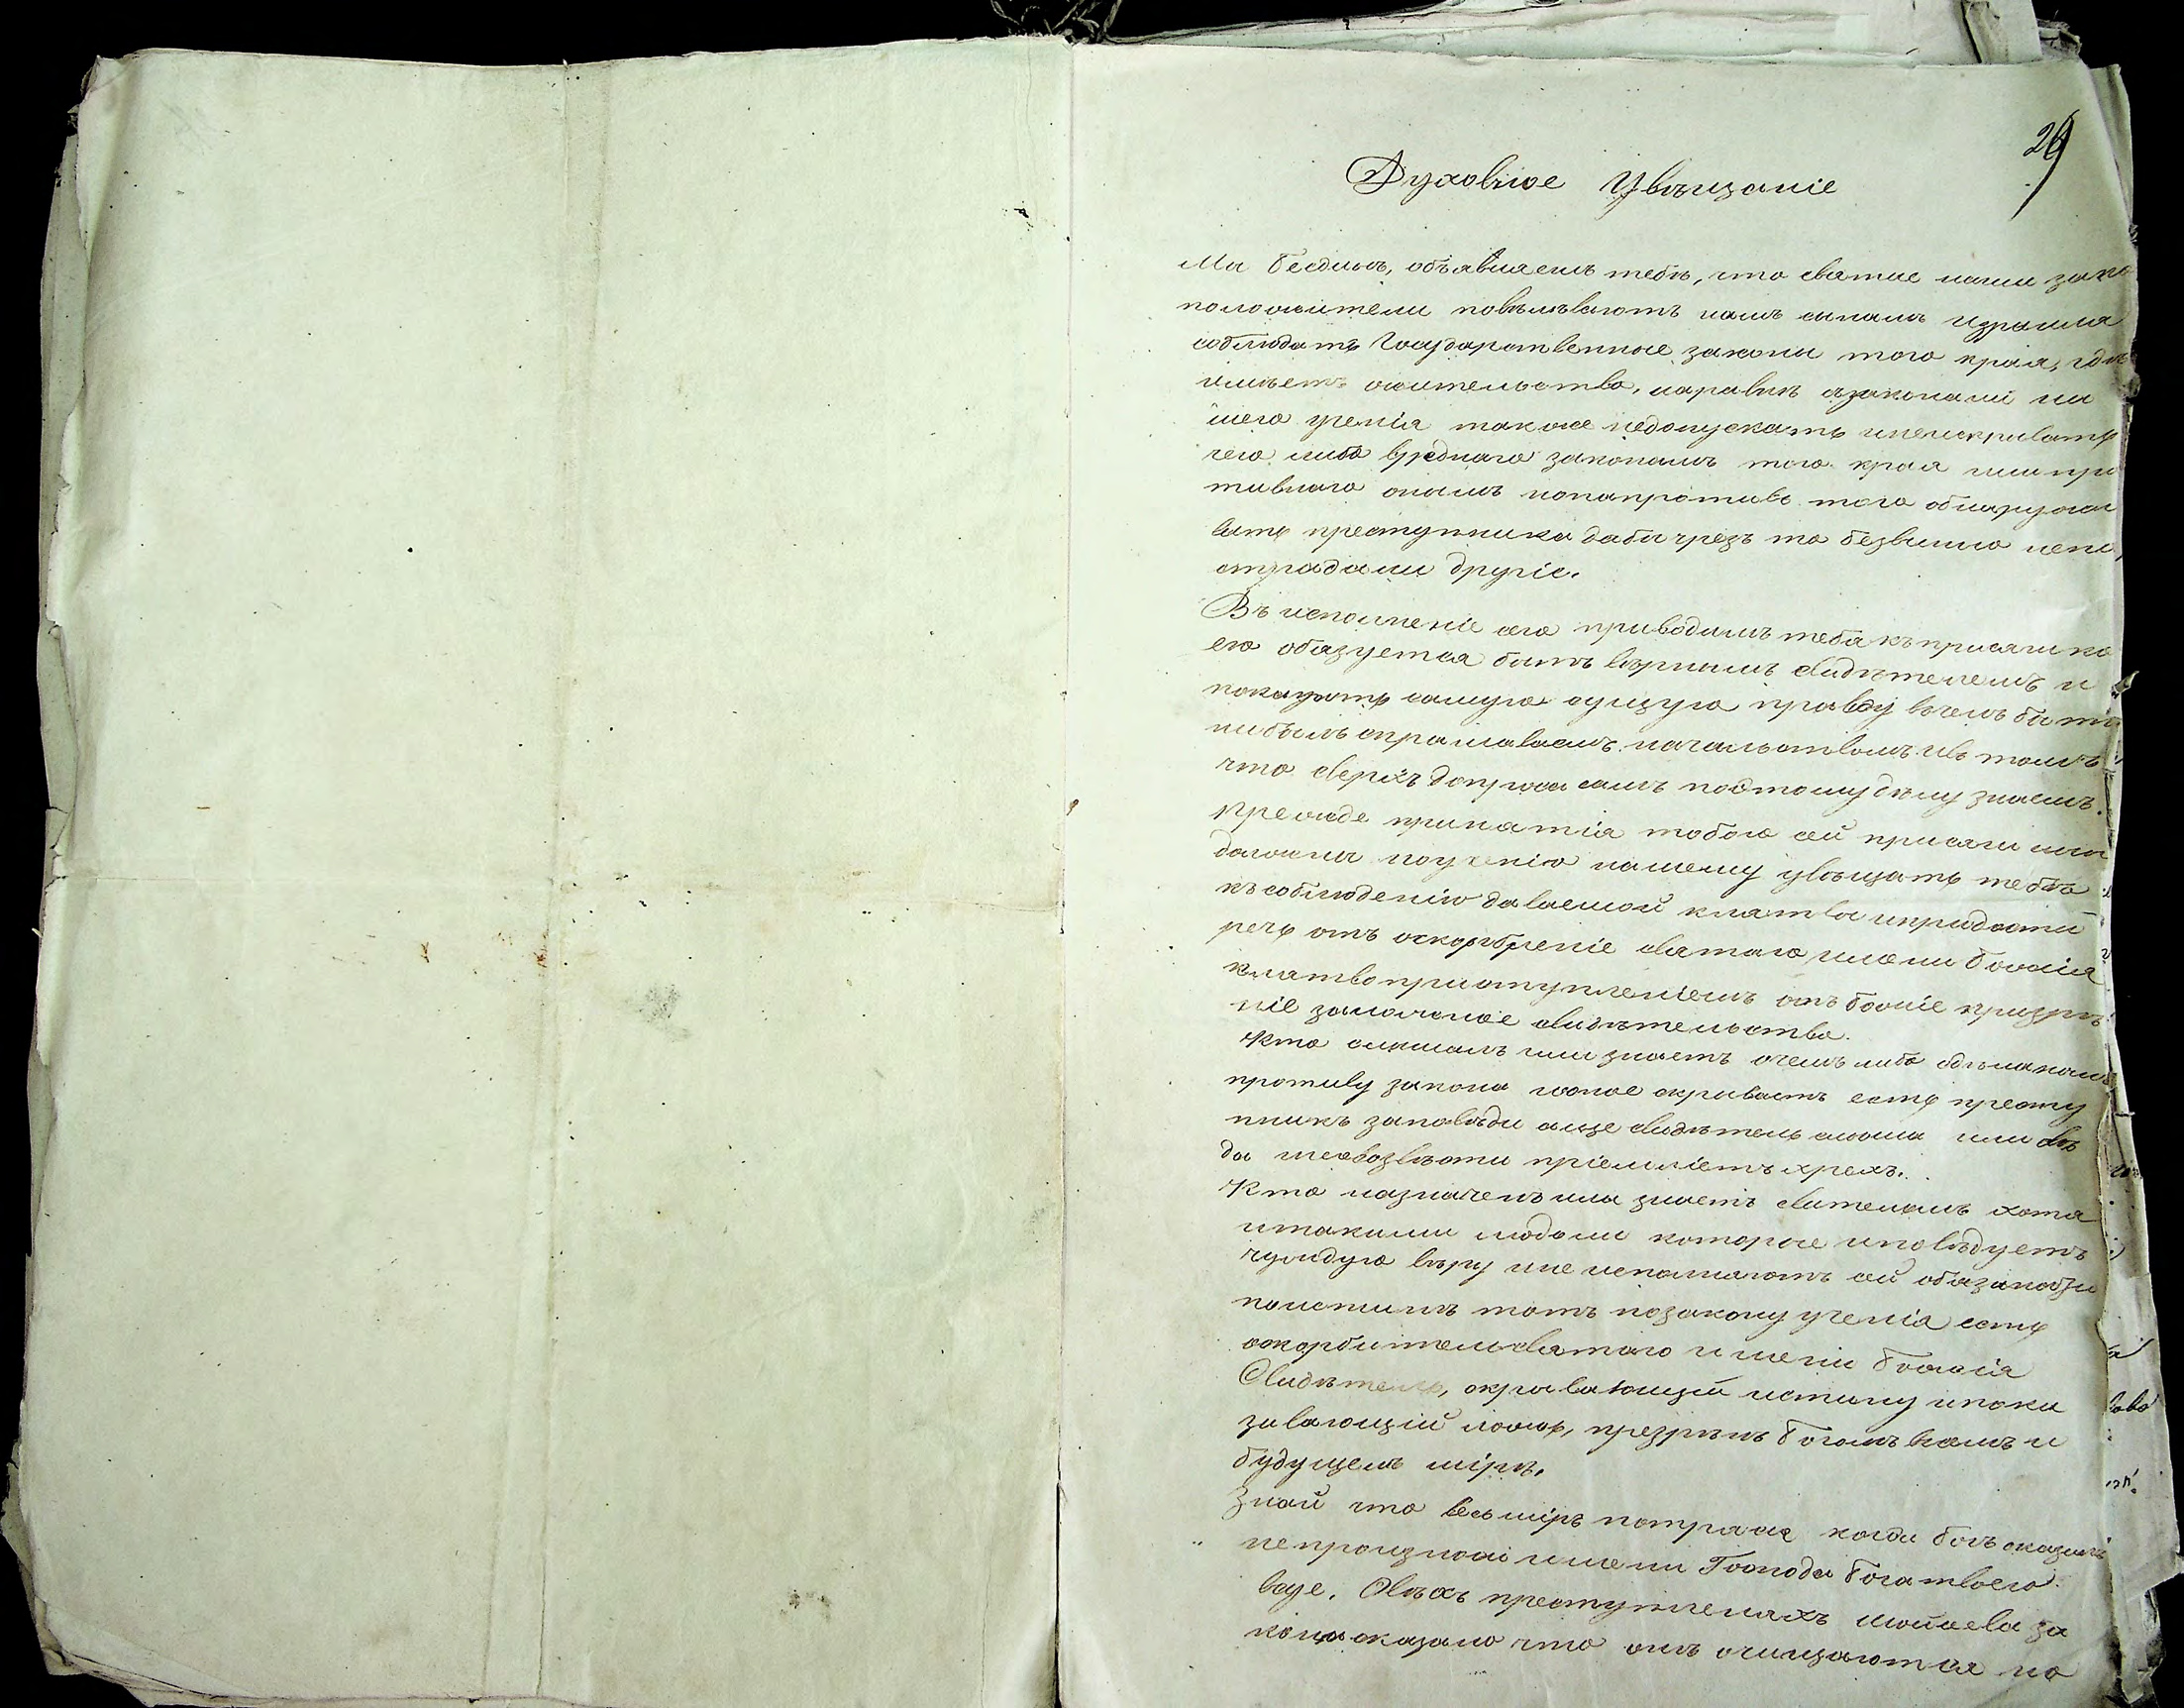 29
Духовное Увѣщаніе
Мы бесдинъ, объявляемъ тебѣ, что святые наши зако
положители повѣлѣваютъ намъ сынамъ израиля
соблюдать Государственные законы того края, гдѣ
имѣетъ жительство, наравнѣ сзаконами на
шего ученія такоже недопускать инескрывать
чего либо вреднаго законамъ того края или про
тивнаго онымъ нонапротивъ того обнаружи
вать преступника дабы чрезъ то безвинно непо
страдали другіе.
Въ исполненіе сего приводимъ тебя къ присяги ко
ею обязуется быть вѣрнымъ свидѣтелемъ и
показать самую сущую правду вчемъ бы ты
нибылъ спрашиваемъ начальствомъ ивъ томъ
что сверхъ допроса самъ поэтому дѣлу знаешь.
Прежде принятія тобою сей присяги мы
должны поученію нашему увѣщать тебѣ
къ соблюденію даваемой клятвы ипридости
речь отъ оскорбреніе святаго имени божія
клятвоприступленіемъ отъ божіе призрѣ
ніе заложное свидѣтельство.
Кто слышалъ или знаетъ очемъ либо сдѣланомъ
противу закона ионое скрываетъ есть престу
пникъ заповѣди аще свидѣтель слыша или вѣ
да невозвѣсти пріемлетъ хрехъ.
Кто назначенъ или знаетъ свителямъ хотя
итакими людьми которые исповѣдуетъ
чуждую вѣру ине исполняютъ сей обязанобзи
поистинѣ тотъ позакону ученія есть
оскорбитель святаго имени божія
Свидѣтель, скрывающій истину ипока
зывающій ложь, презрѣнъ богомъ всамъ и
будущемъ мірѣ.
Знай что весь міръ потрясся когда богъ сказалъ
непроизноси имени Господа бога твоего
всуе. Овсѣхъ преступленіяхъ мойсева за
кона сказано что онѣ очищаются но